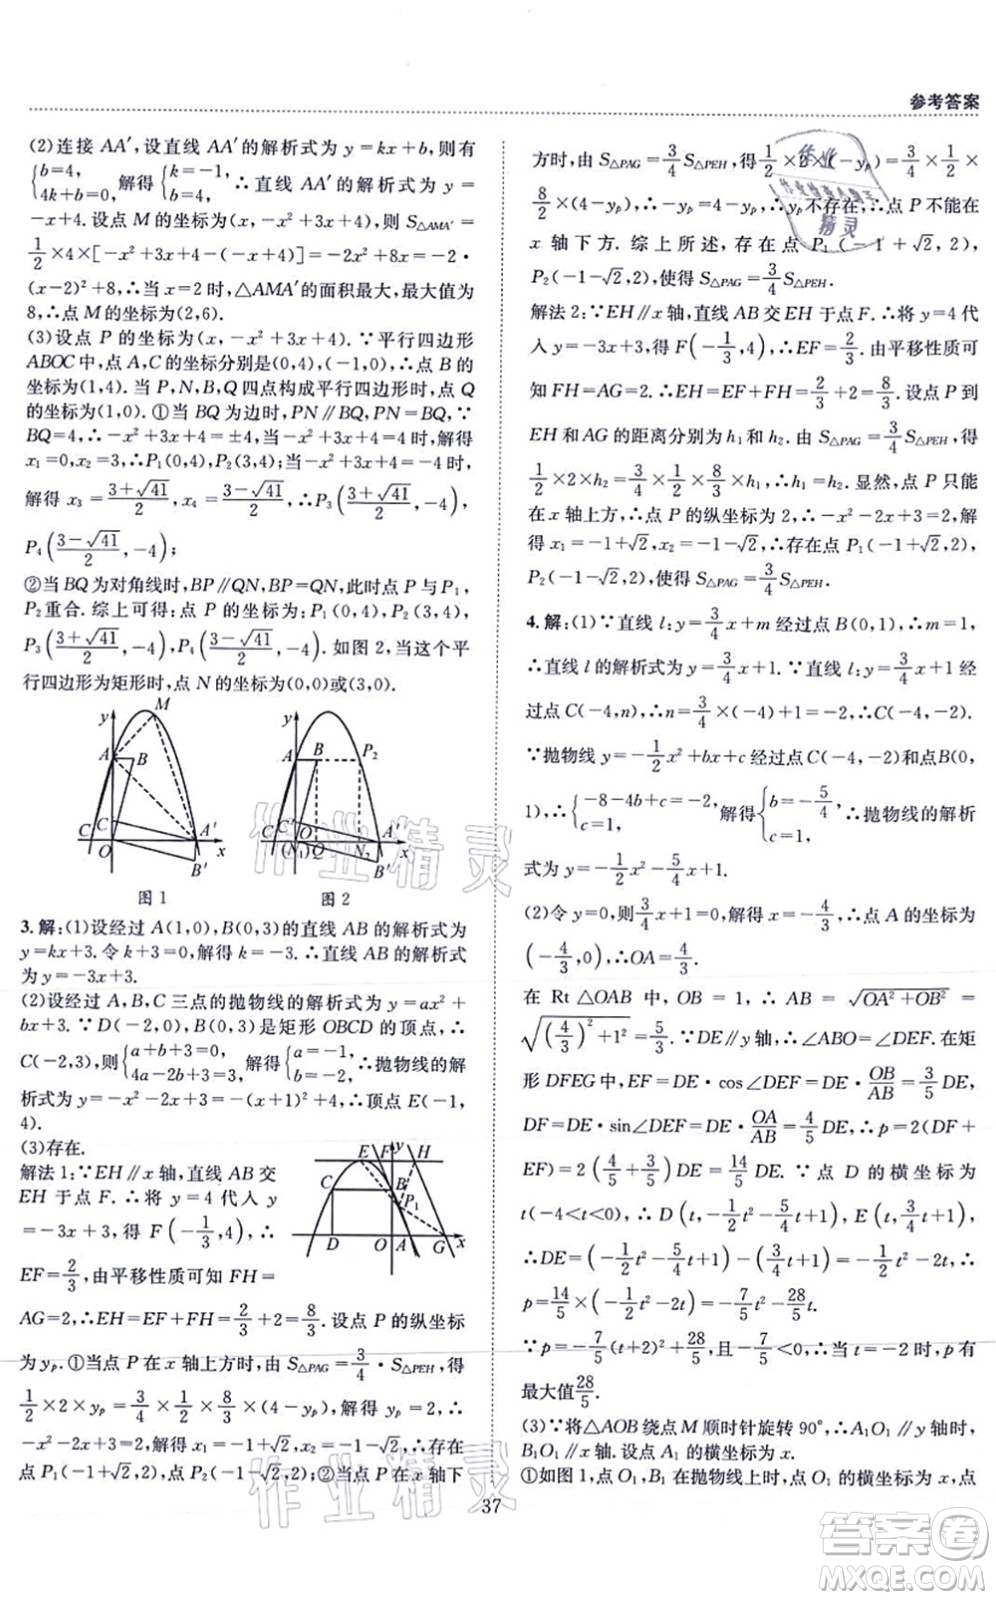 参考答案
(2)连接 AA′,设直线 AA′的解析式为 y=kx+b,则有
{b=4, 4k+b=0, 解得{k=-1, b=4. ∴直线 AA′的解析式为 y=
-x+4. 设点 M 的坐标为(x,-x²+3x+4),则 S△AMA′=
1/2×4×[-x²+3x+4-(-x+4)]=-2x²+8x=-2·
(x-2)²+8,∴当 x=2时,△AMA′的面积最大,最大值为
8,∴点 M 的坐标为(2,6).
(3)设点 P 的坐标为(x,-x²+3x+4). ∵平行四边形
ABOC 中,点 A,C 的坐标分别是(0,4),(-1,0),∴点 B
的坐标为(1,4). 当 P,N,B,Q 四点构成平行四边形时,点 Q
的坐标为(1,0). ①当 BQ 为边时,PN∥BQ,PN=BQ,∵
BQ=4,∴-x²+3x+4=±4,当-x²+3x+4=4时,解得
x₁=0,x₂=3,∴P₁(0,4),P₂(3,4);当-x²+3x+4=-4时,
解得 x₃=(3+√41)/2,x₄=(3-√41)/2,∴P₃((3+√41)/2,-4),
P₄((3-√41)/2,-4);
②当 BQ 为对角线时,BP∥QN,BP=QN,此时点 P 与 P₁,
P₂重合. 综上可得:点 P 的坐标为:P₁(0,4),P₂(3,4),
P₃((3+√41)/2,-4),P₄((3-√41)/2,-4);如图 2,当这个平
行四边形为矩形时,点 N 的坐标为(0,0)或(3,0).
y M A B C C′ O A′ x B′
y A B P₂ C C′ O A′ (N₁) Q N₂ x B′
图 1 图 2
3. 解:(1)设经过 A(1,0),B(0,3)的直线 AB 的解析式为
y=kx+3. 令 k+3=0,解得 k=-3. ∴直线 AB 的解析式
为 y=-3x+3.
(2)设经过 A,B,C 三点的抛物线的解析式为 y=ax²+
bx+3. ∵D(-2,0),B(0,3)是矩形 OBCD 的顶点,∴
C(-2,3),则{a+b+3=0, 4a-2b+3=3, 解得{a=-1, b=-2. ∴抛物线的解
析式为 y=-x²-2x+3=-(x+1)²+4,∴顶点 E(-1,
4).
(3)存在.
解法 1:∵EH∥x 轴,直线 AB 交
EH 于点 F. ∴将 y=4 代入 y
=-3x+3,得 F(-1/3,4),∴
EF=2/3,由平移性质可知 FH=
E F y H C B P₁ D O A G x
AG=2,∴EH=EF+FH=2/3+2=8/3. 设点 P 的纵坐标
为 yₚ. ①当点 P 在 x 轴上方时,由 S△PAG=3/4·S△PEH,得
1/2×2×yₚ=3/4×1/2×8/3×(4-yₚ),解得 yₚ=2,∴
-x²-2x+3=2,解得 x₁=-1+√2,x₂=-1-√2,∴存在
点 P₁(-1+√2,2),P₂(-1-√2,2);②当点 P 在 x 轴下
方时,由 S△PAG=3/4 S△PEH,得1/2×2×(-yₚ)=3/4×1/2×
8/3×(4-yₚ),∴-4yₚ=4-yₚ,∴yₚ不存在,∴点 P 不能在
x 轴下方. 综上所述,存在点 P₁(-1+√2,2),
P₂(-1-√2,2),使得 S△PAG=3/4 S△PEH.
解法 2:∵EH∥x 轴,直线 AB 交 EH 于点 F. ∴将 y=4 代
入 y=-3x+3,得 F(-1/3,4),∴EF=2/3. 由平移性质可
知 FH=AG=2. ∴EH=EF+FH=2/3+2=8/3. 设点 P 到
EH 和 AG 的距离分别为 h₁ 和 h₂. 由 S△PAG=3/4 S△PEH,得
1/2×2×h₂=3/4×1/2×8/3×h₁,∴h₁=h₂. 显然,点 P 只能
在 x 轴上方,∴点 P 的纵坐标为 2,∴-x²-2x+3=2,解
得 x₁=-1+√2,x₂=-1-√2,∴存在点 P₁(-1+√2,2),
P₂(-1-√2,2),使得 S△PAG=3/4 S△PEH.
4. 解:(1)∵直线 l:y=3/4 x+m 经过点 B(0,1),∴m=1,
∴直线 l 的解析式为 y=3/4 x+1. ∵直线 l:y=3/4 x+1 经
过点 C(-4,n),∴n=3/4×(-4)+1=-2,∴C(-4,-2).
∵抛物线 y=-1/2 x²+bx+c 经过点 C(-4,-2)和点(0,
1),∴{-8-4b+c=-2, c=1, 解得{b=-5/4, c=1, ∴抛物线的解析
式为 y=-1/2 x²-5/4 x+1.
(2)令 y=0,则3/4 x+1=0,解得 x=-4/3,∴点 A 的坐标为
(-4/3,0),∴OA=4/3.
在 Rt △OAB 中,OB = 1,∴ AB = √(OA²+OB²) =
√((4/3)²+1²)=5/3. ∵DE∥y 轴,∴∠ABO=∠DEF. 在矩
形 DFEG 中,EF=DE·cos∠DEF=DE·OB/AB=3/5 DE,
DF=DE·sin∠DEF=DE·OA/AB=4/5 DE,∴p=2(DF+
EF)=2(4/5+3/5)DE=14/5 DE. ∵点 D 的横坐标为
t(-4<t<0),∴D(t,-1/2 t²-5/4 t+1),E(t,3/4 t+1),
∴DE=(-1/2 t²-5/4 t+1)-(3/4 t+1)=-1/2 t²-2t,∴
p=14/5×(-1/2 t²-2t)=-7/5 t²-28/5 t.
∵p=-7/5(t+2)²+28/5,且-7/5<0,∴当 t=-2 时,p 有
最大值28/5.
(3)∵将△AOB 绕点 M 顺时针旋转 90°,∴A₁O₁∥y 轴时,
B₁O₁∥x 轴. 设点 A₁ 的横坐标为 x.
①如图 1,点 O₁,B₁ 在抛物线上时,点 O₁ 的横坐标为 x,点
37
作业精灵
作业精灵
作业
精灵
答案圈
MXQE.COM